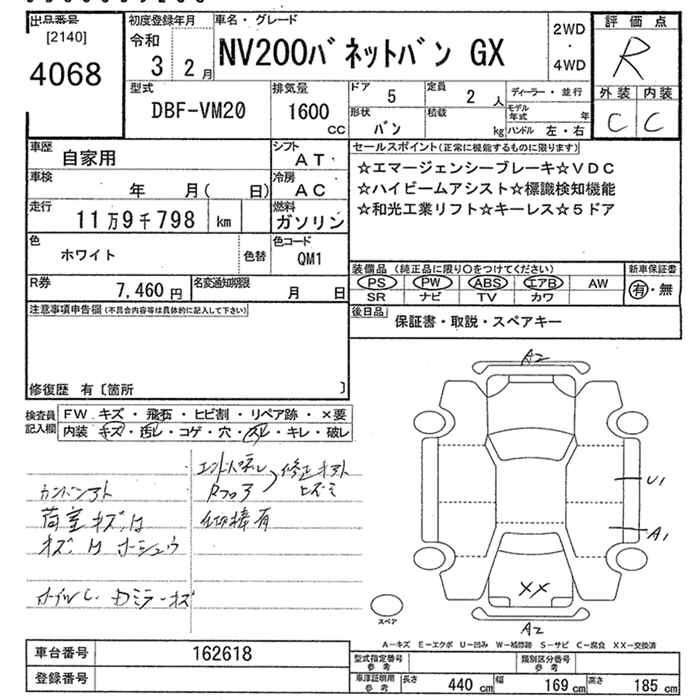 出品番号
[2140]
4068
初度登録年月
令和
3 2月
車名・グレード
NV200バネットバン GX
2WD
・
4WD
評価点
R
外装 内装
C C
型式
DBF-VM20
排気量
1600
cc
ドア
5
定員
2 人
ディーラー・並行
形状
バン
積載
kg
モデル年式 年
ハンドル 左・右
車歴
自家用
シフト
AT
車検
年 月( 日)
冷房
AC
走行
11万9千798 km
燃料
ガソリン
色
ホワイト
色替
色コード
QM1
R券
7,460 円
名変通知期限
月 日
セールスポイント(正常に機能するものに限ります)
☆エマージェンシーブレーキ☆VDC
☆ハイビームアシスト☆標識検知機能
☆和光工業リフト☆キーレス☆5ドア
装備品(純正品に限り○をつけてください)
新車保証書
PS PW ABS エアB AW
有・無
SR ナビ TV カワ
後日品
保証書・取説・スペアキー
注意事項申告欄(不具合内容等は具体的に記入して下さい)
修復歴 有〔箇所 〕
検査員
記入欄
FW キズ・飛石・ヒビ割・リペア跡・×要
内装 キズ・汚レ・コゲ・穴・スレ・キレ・破レ
カンバンアト
荷室キズ凹
キズ凹ホシュウ
Rフロア
修正キアト
ヒズミ
溶接有
ホイルC、Dミラーキズ
A2
U1
A1
XX
A2
スペア
A-キズ E-エクボ U-凹み W-補修跡 S-サビ C-腐食 XX-交換済
車台番号
162618
登録番号
型式指定番号
参考
類別区分番号
参考
車庫証明用
参考
長さ
440 cm
幅
169 cm
高さ
185 cm